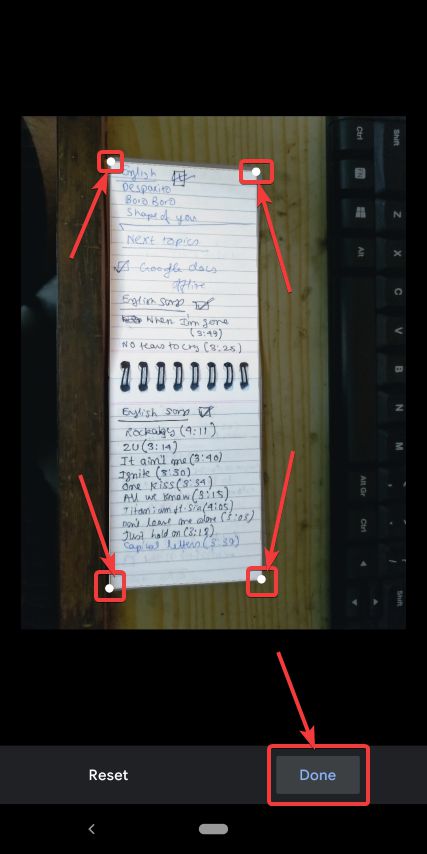 English
Despacito
Boro Boro
Shape of you
Next topics
Google docs
offline
English songs
When I'm gone
(3:49)
NO tears to cry (3:25)
English song
Rockabye (4:11)
2U (3:14)
It ain't me (3:40)
Ignite (3:30)
One Kiss (3:34)
All we know (3:15)
Titanium ft. Sia (4:05)
Don't leave me alone (3:03)
Just hold on (3:18)
Capital letters (3:39)
Ctrl
Shift
Z
Alt
X
C
V
B
N
M
Alt Gr
Ctrl
/
Shift
Reset
Done